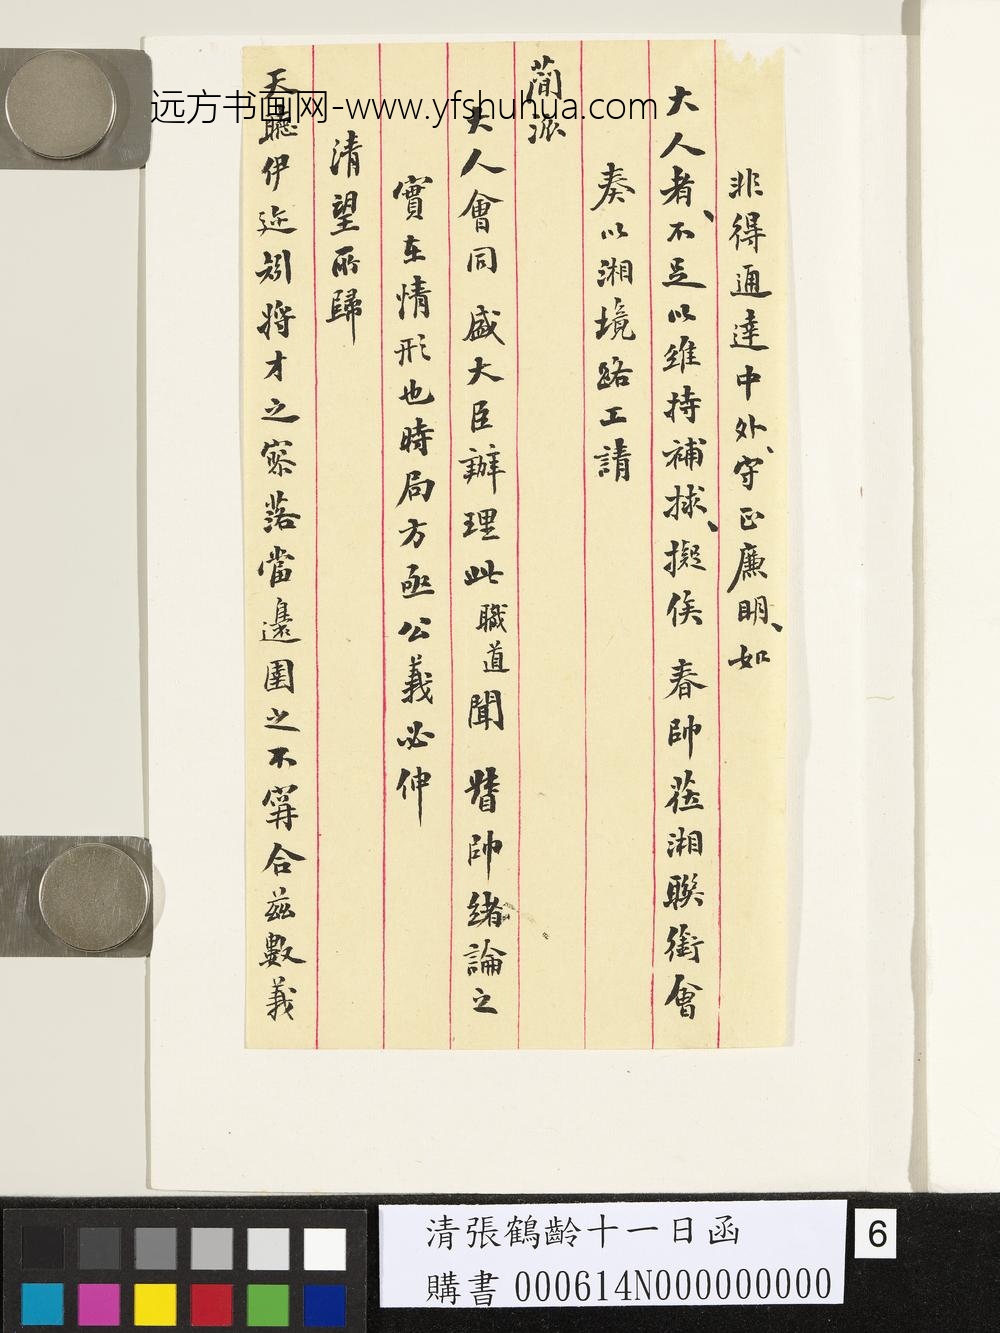 远方书画网-www.yfshuhua.com
非得通達中外、守正廉明、如
大人者、不足以維持補捄、擬俟 春帥莅湘聯銜會
奏以湘境路工請
簡派
大人會同 盛大臣辦理此職道聞 督帥緒論之
實在情形也時局方亟公義必伸
清望所歸
天聽伊邇矧將才之寥落當邊圉之不寧合茲數義
清張鶴齡十一日函
購書 000614N000000000
6